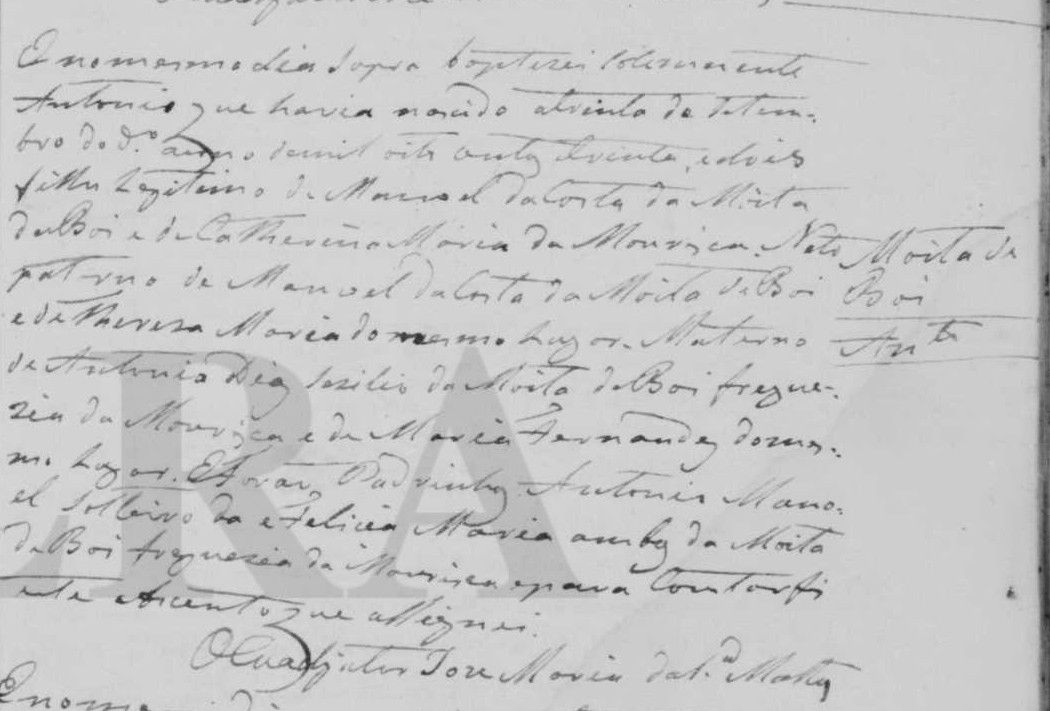 E no mesmo dia supra baptizei solemnemente
Antonio que havia nascido a trinta de Setem-
bro do d.º anno de mil oito centos e trinta, e dois
filho Legitimo de Manoel da Costa da Moita
de Boi e de Catherina Maria da Mourisca. Neto
paterno de Manoel da Costa da Moita de Boi
e de Thereza Maria do mesmo Lugar. Materno
de Antonio Dias da Moita de Boi fregue-
zia da Mourisca e de Maria Fernandes do mes-
mo Lugar. E forão Padrinhos Antonio Mano-
el solteiro e Felicia Maria ambos da Moita
de Boi freguezia da Mourisca e para Constar fis
este Acento que assignei.
O Coadjutor Joze Maria Mattos
Moita de
Boi
Ant.º
E no mesmo